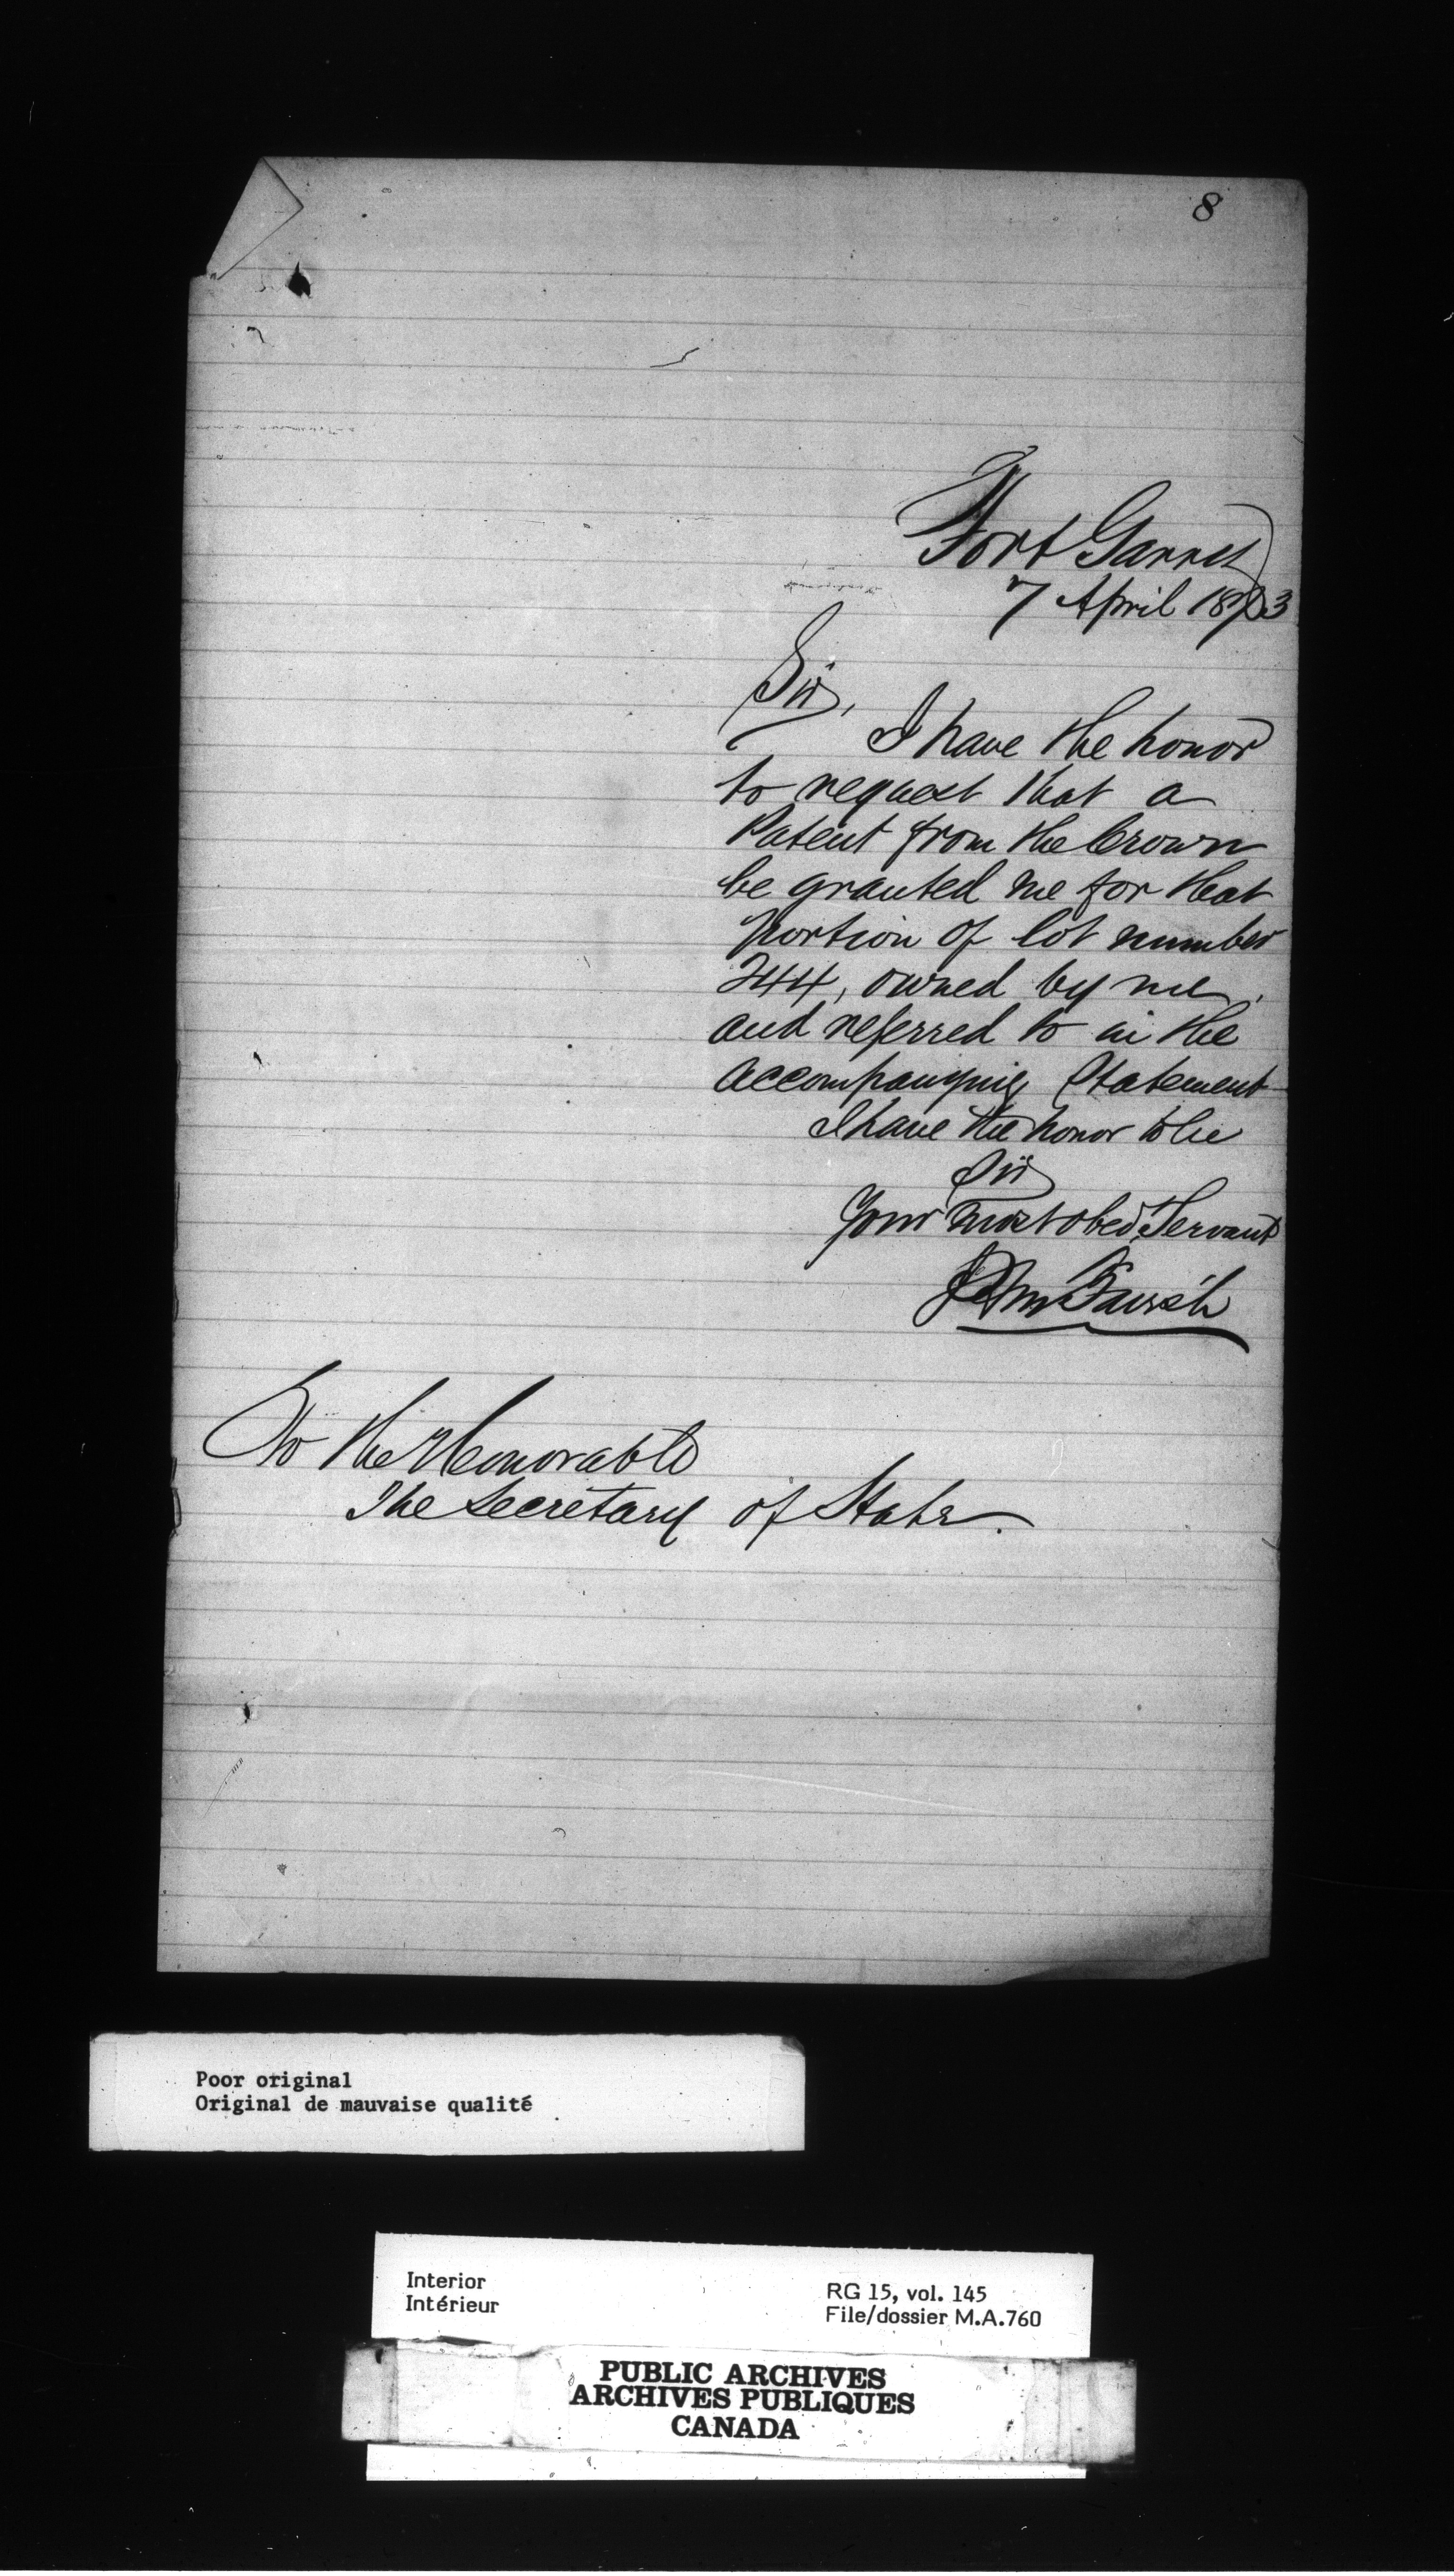 8
Fort Garry
7 April 1873
Sir,
I have the honor
to request that a
Patent from the Crown
be granted me for that
portion of lot number
244, owned by me,
and referred to in the
accompanying Statement
I have the honor to be
Sir
Your most obed. Servant
To the Honorable
The Secretary of State.
Poor original
Original de mauvaise qualité
Interior
Intérieur
RG 15, vol. 145
File/dossier M.A.760
PUBLIC ARCHIVES
ARCHIVES PUBLIQUES
CANADA